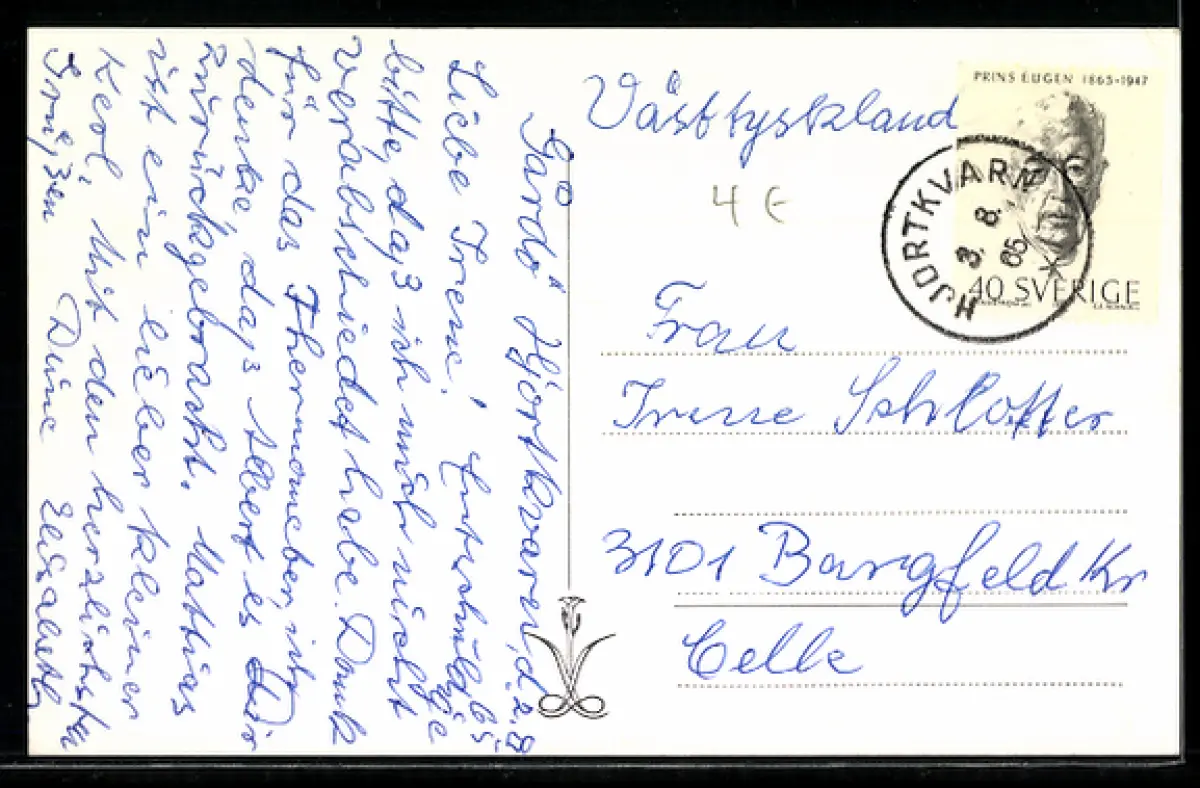 Gårdö Hjortkvarn, d. 2. 8
65
Liebe Irene! Entschuldige
bitte, daß ich mich nicht
verabschiedet habe. Dank
für das Thermometer, ich
denke, daß Albert es Dir
zurückgebracht. Mattias
ist ein lieber kleiner
Kerl. Mit den herzlichsten
Grüßen Deine Elisabeth.
Västtyskland
4 €
PRINS EUGEN 1865-1947
HJORTKVARN
3. 8. 65
40 SVERIGE
Frau
Irene Schlotter
3101 Bargfeld Kr
Celle